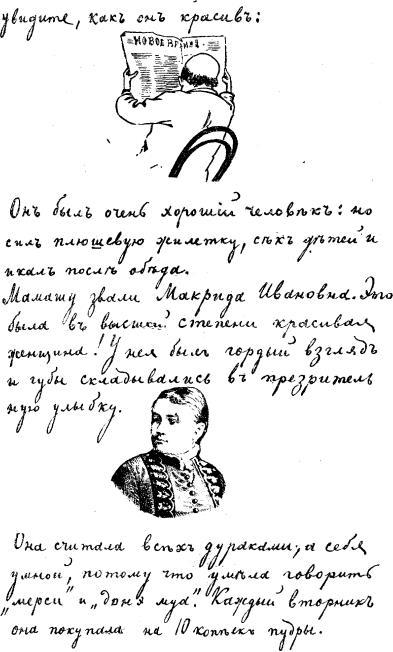 увидите, какъ онъ красивъ:
НОВОЕ ВРЕМЯ
Онъ былъ очень хорошій человѣкъ: но
силъ плюшевую жилетку, сѣкъ дѣтей и
икалъ послѣ обѣда.
Мамашу звали Макрида Ивановна. Это
была въ высшей степени красивая
женщина! У нея былъ гордый взглядъ
и губы складывались въ презритель
ную улыбку.
Она считала всѣхъ дураками, а себя
умной, потому что умѣла говорить
„мерси" и „доне муа". Каждый вторникъ
она покупала на 10 копѣекъ пудры.